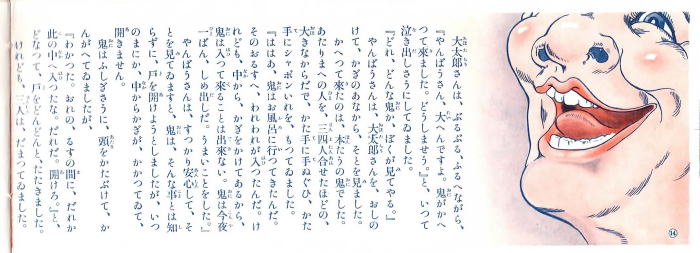 大太郎さんは、ぶるぶるふるへながら、
『やんばうさん、大へんですよ。鬼がかへ
つて來ました。どうしませう。』と、いつて
泣き出しさうにしてゐました。
『どれ、どんな鬼か、ぼくが見てやる。』
やんばうさんは、大太郎さんを、おしの
けて、かぎのあなから、そとを見ました。
かへつて來たのは、本たうの鬼でした。
あたりまへの人を、三四人合せたほどの、
大きなからだで、かた手に手ぬぐひ、かた
手にシャボン入れを、もつてゐました。
『ははあ、鬼はお風呂に行つてきたんだ。
そのおるすへ、われわれが入つたんだ。け
れども、中から、かぎをかけてあるから、
鬼は入つて來ることは出來ない。鬼は今夜
一ばん、しめ出しだ。うまいことをした。』
やんばうさんは、すつかり安心して、そ
とを見てゐますと、鬼は、そんな事とは知
らずに、戸を開けようとしましたが、いつ
のまにか、中からかぎが、かかつてゐて、
開きません。
鬼はふしぎさうに、頭をかたぶけて、か
んがへてゐましたが、
『わかつた。おれの、るすの間に、だれか
此の中へ入つたな。だれだ。開けろ。』と、
どなつて、戸をどんどんと、たたきました。
けれども、三人は、だまつてゐました。
14